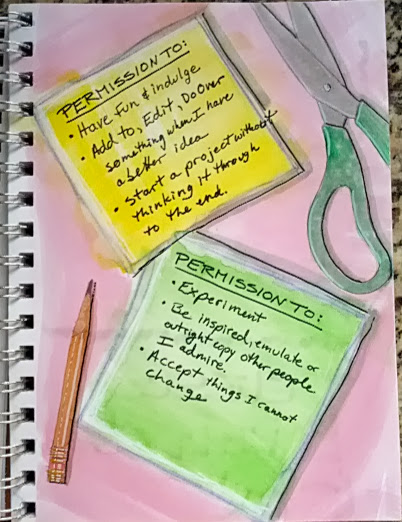 PERMISSION TO:
• Have Fun & indulge
• Add to, Edit, Do Over
something when I have
a better idea
• Start a project without
thinking it through
to the end.
PERMISSION TO:
• Experiment
• Be inspired, emulate or
outright copy other people
I admire.
• Accept things I cannot
change